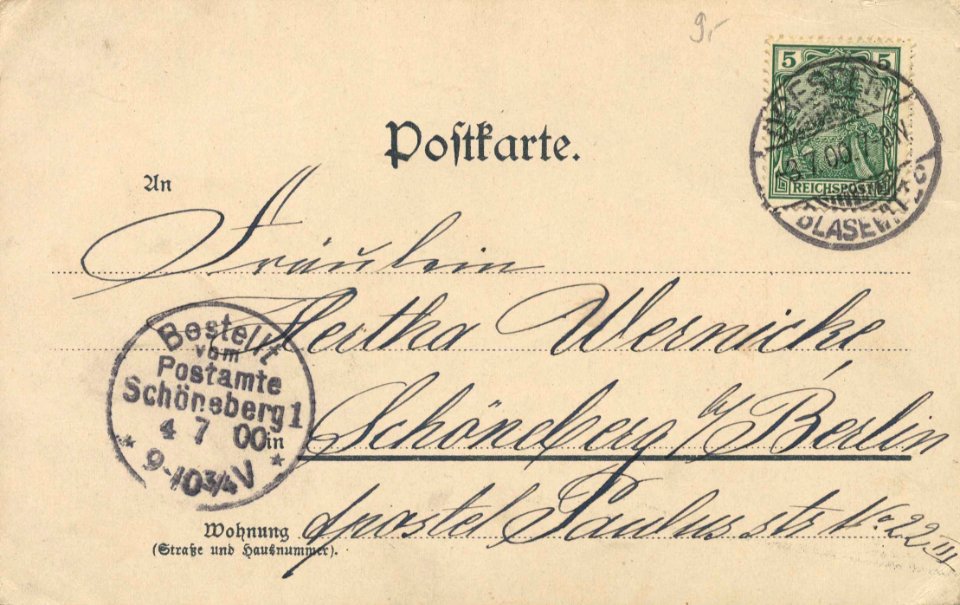 9.-
5 5
REICHSPOST
DRESDEN
3.7.00. 7-8N.
BLASEWITZ
Postkarte.
An
Fräulein
Hertha Wernicke
in Schöneberg b/ Berlin
Apostel Paulus str No 22 III
Wohnung
(Straße und Hausnummer).
Bestellt
vom
Postamte
Schöneberg 1
4 7 00
* 9-10¾V *